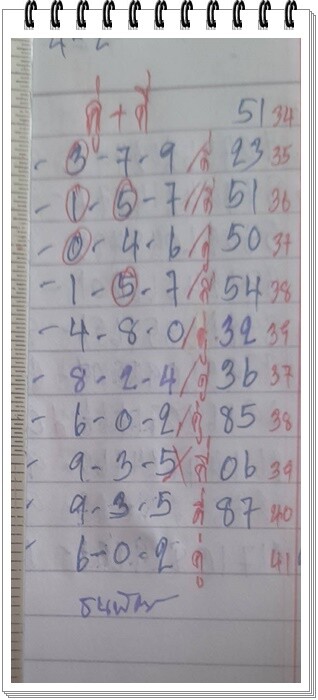 4-2
คู่ + คี่ 51 34
- 3 - 7 - 9 /คี่ 23 35
- 1 - 5 - 7 /คี่ 51 36
- 0 - 4 - 6 /คู่ 50 37
- 1 - 5 - 7 /คี่ 54 38
- 4 - 8 - 0 /คู่ 32 39
- 8 - 2 - 4 /คู่ 36 37
- 6 - 0 - 2 /คู่ 85 38
- 9 - 3 - 5 X คี่ 06 39
- 9 - 3 - 5 คี่ 87 40
- 6 - 0 - 2 คู่ 41